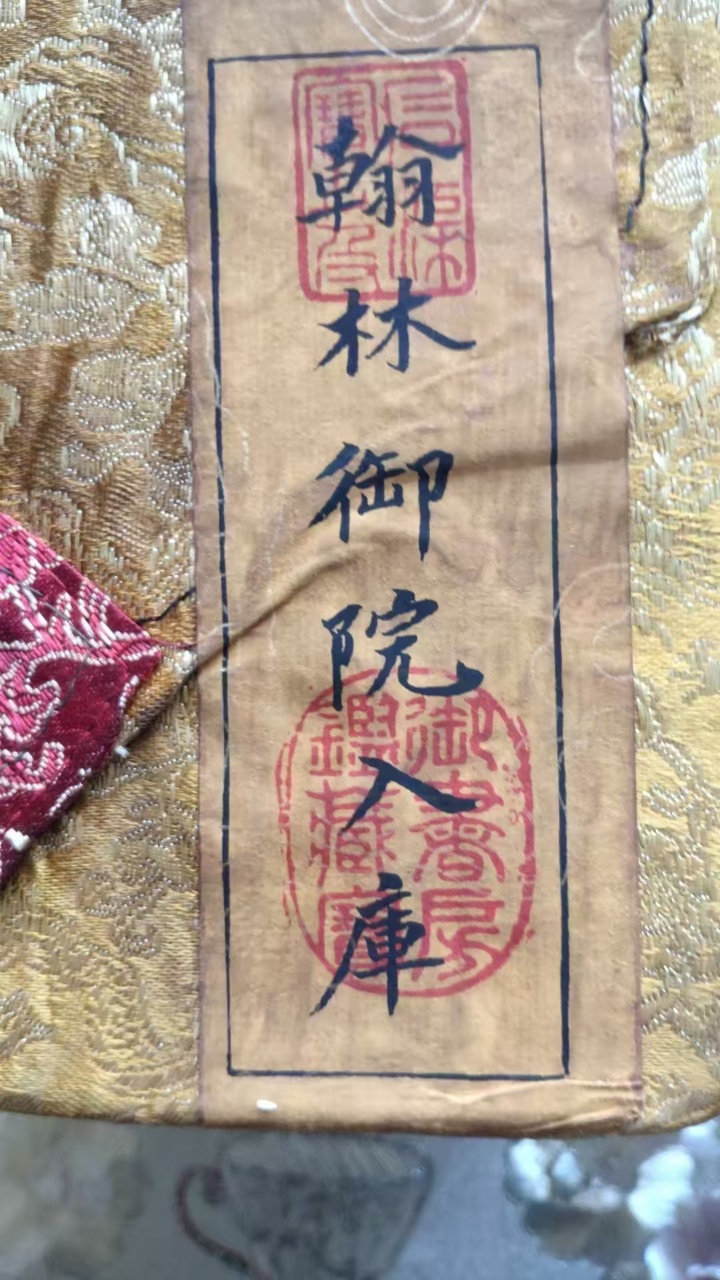 翰林御院入庫
御書房
鑑藏寶